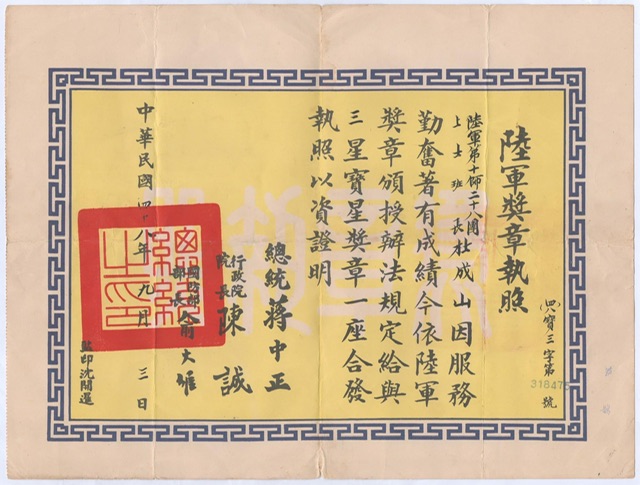 陸軍獎章執照
(四八)寶三字第318475號
陸軍第十師二十八團
上士班長杜成山因服務
勤奮著有成績今依陸軍
獎章頒授辦法規定給與
三星寶星獎章一座合發
執照以資證明
總統 蔣中正
行政院院長 陳誠
國防部部長 俞大維
中華民國四十八年九月三日
監印沈開運
總統之印